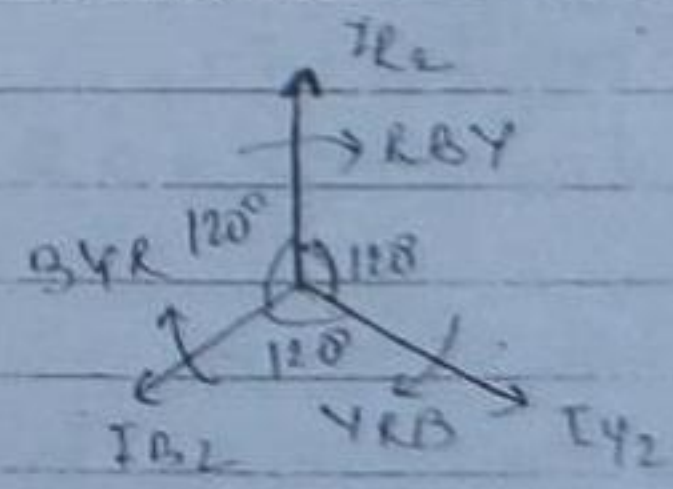 IR2
RBY
120°
BYR
120°
120°
YRB
IB2
IY2